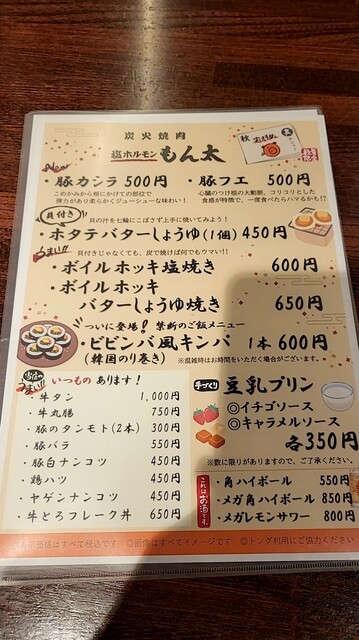 炭火焼肉
塩ホルモン もん太
秋
New
・豚カシラ 500円
こめかみから頬にかけての部位で
弾力があり柔らかくジューシューな味わい！
・豚フエ 500円
心臓のつけ根の大動脈、コリコリとした
食感が特徴で、一度食べたらハマるかも!?
貝付き
貝の汁を七輪にこぼさず上手に焼いてみよう！
・ホタテバターしょうゆ(1個) 450円
うまい!!
貝付きじゃなくても、炭で焼けば何でもウマい!!
・ボイルホッキ塩焼き 600円
・ボイルホッキ
バターしょうゆ焼き 650円
ついに登場！禁断のご飯メニュー
・ビビンバ風キンパ 1本 600円
(韓国のり巻き)
※混雑時はお時間をいただく場合がございます。
うまい!!
いつもの あります！
・牛タン 1,000円
・牛丸腸 750円
・豚のタンモト(2本) 300円
・豚バラ 550円
・豚白ナンコツ 450円
・鶏ハツ 450円
・ヤゲンナンコツ 450円
・牛とろフレーク丼 650円
手づくり 豆乳プリン
◎イチゴソース
◎キャラメルソース
各350円
※数に限りがありますので、ご了承ください。
これはお酒です。
・角ハイボール 550円
・メガ角ハイボール 850円
・メガレモンサワー 800円
価格はすべて税込です ◎画像はすべてイメージです ◎トング利用にご協力ください